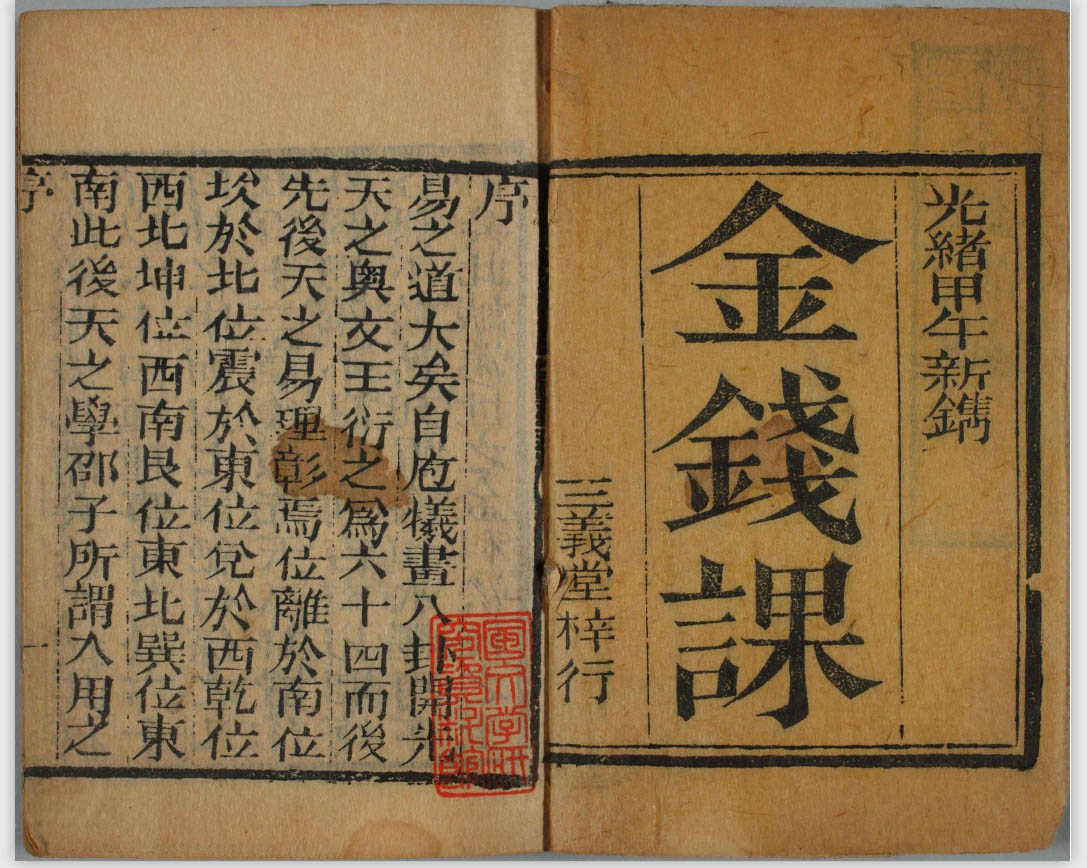 光緒甲午新鐫
金錢課
三義堂梓行
序
易之道大矣自庖犧畫八卦開先
天之奧文王衍之爲六十四而後
先後天之易理彰焉位離於南位
坎於北位震於東位兌於西乾位
西北坤位西南艮位東北巽位東
南此後天之學邵子所謂入用之
序
一